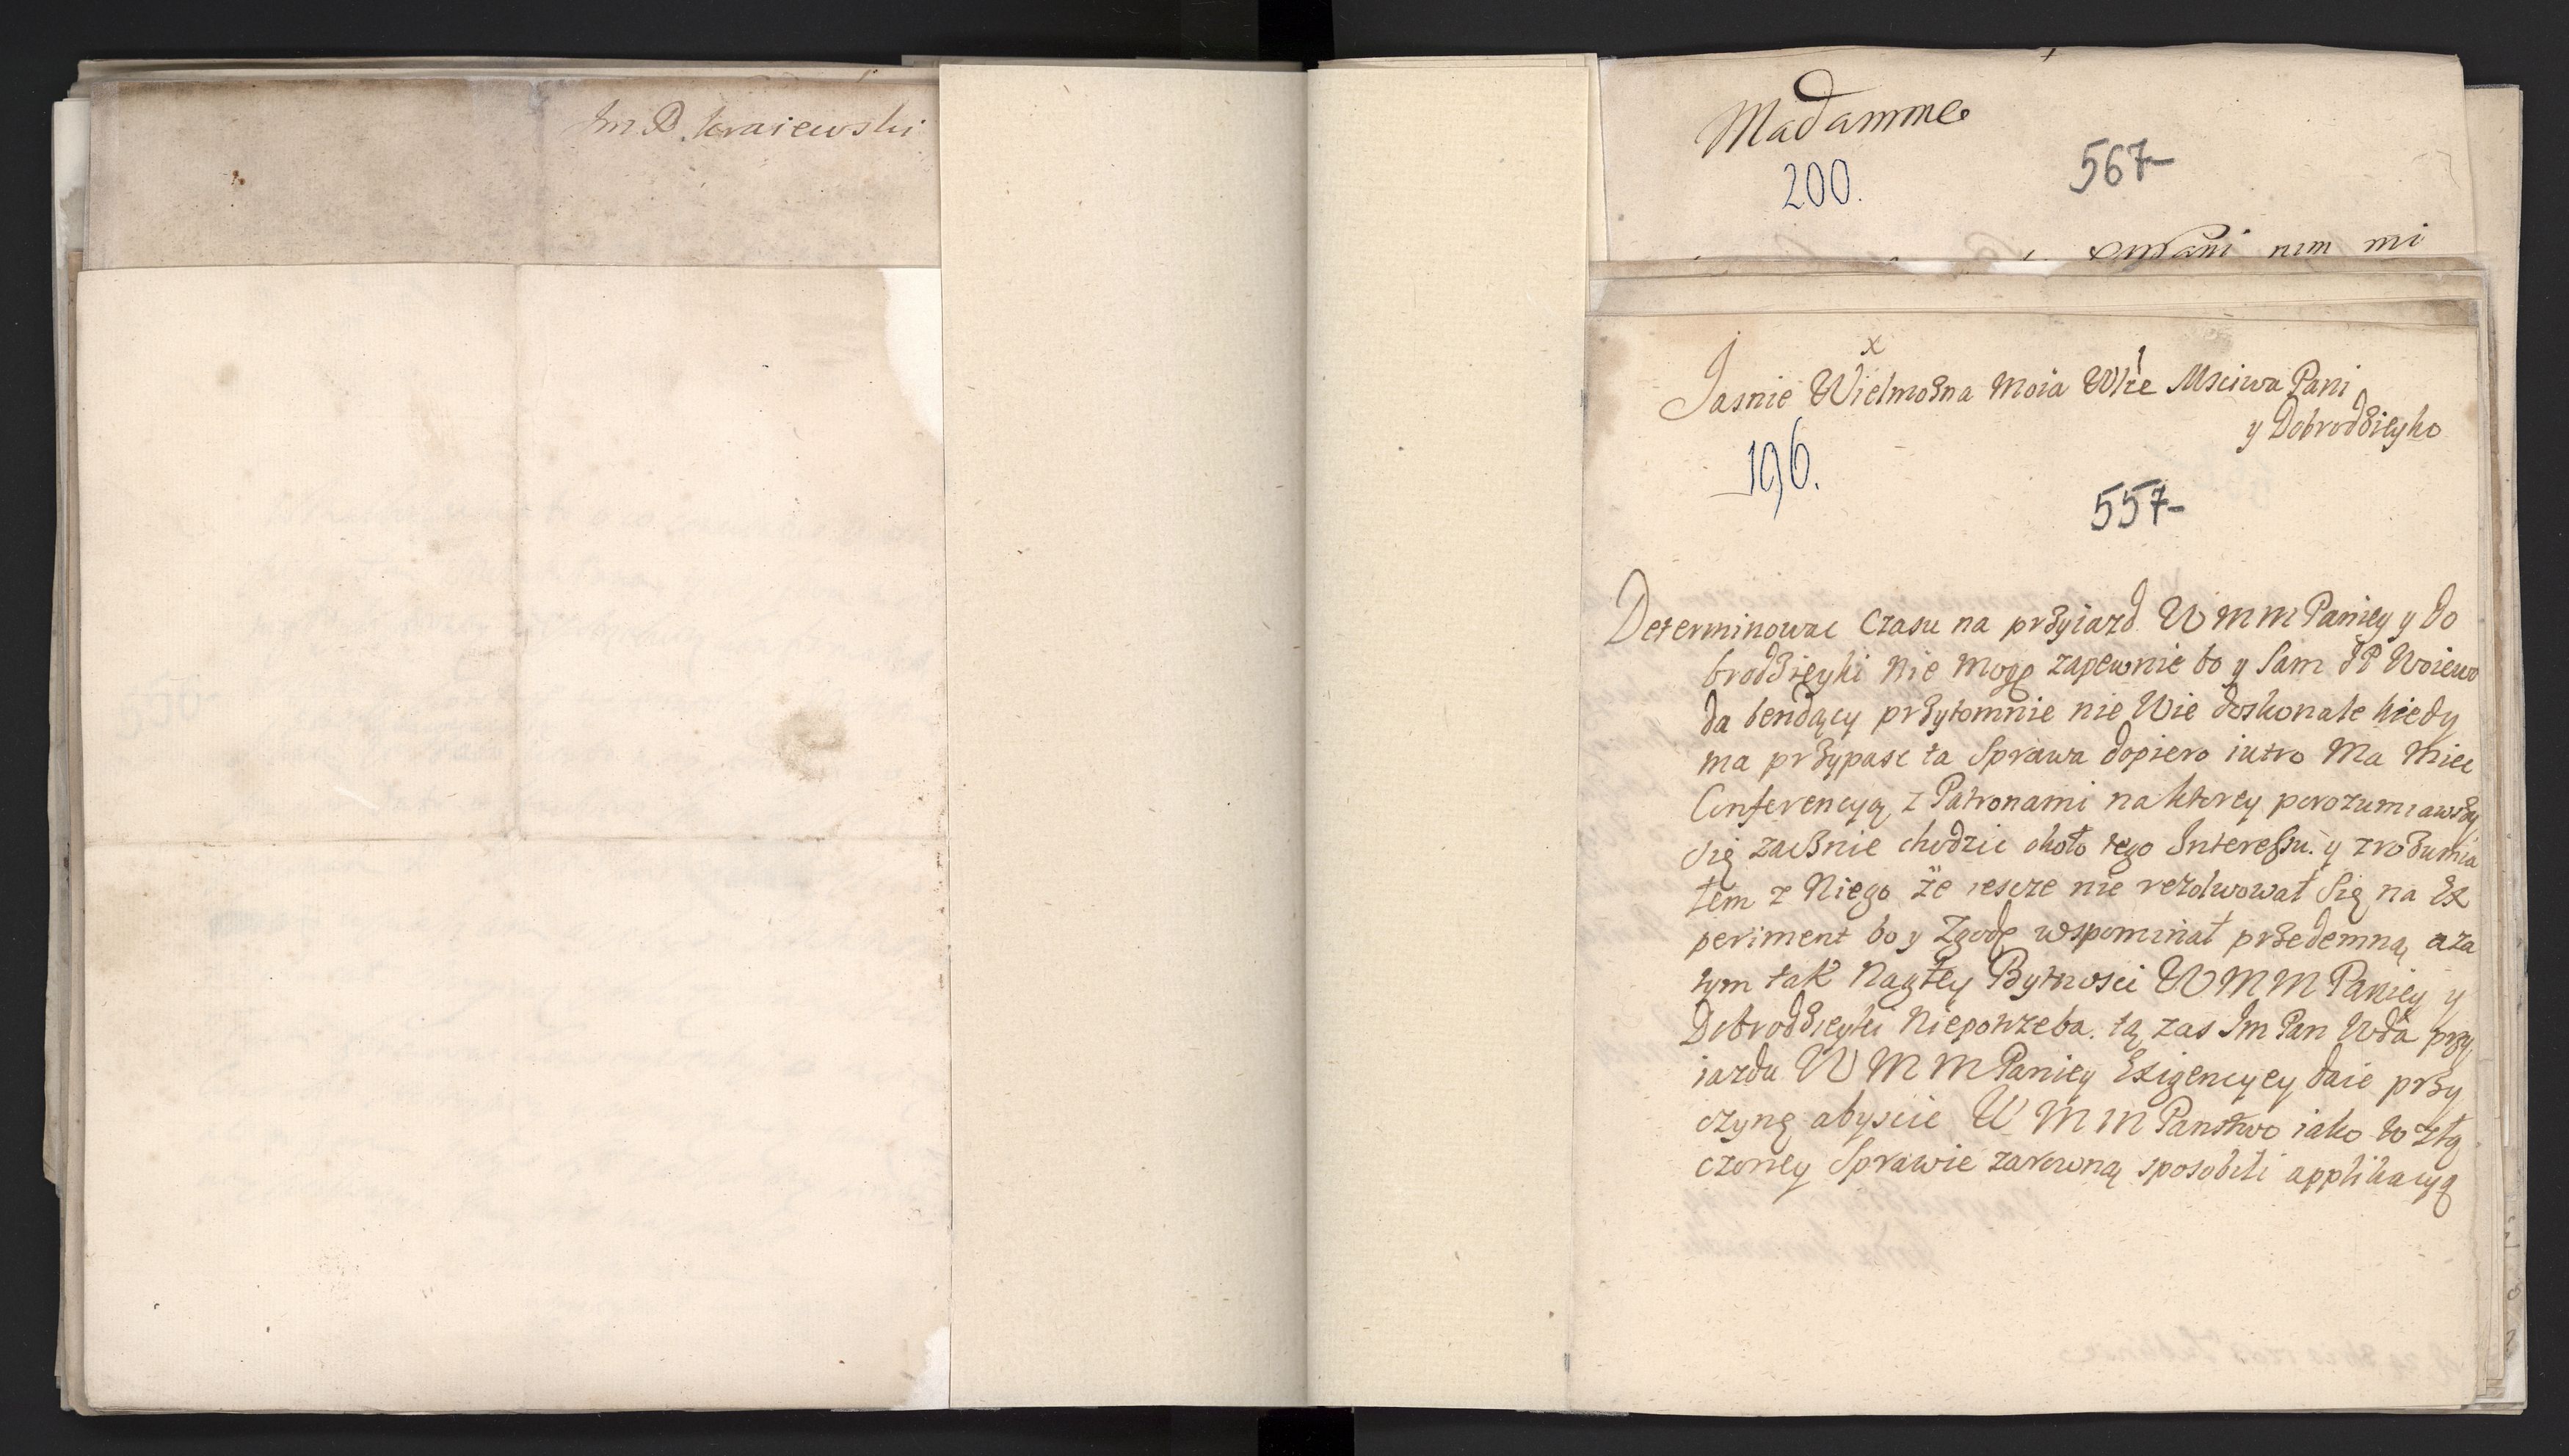 Im P. Kraiewski
Madamme
200.
567-
nim mi
x
Jasnie Wielmożna Moia Wke Msciwa Pani
y Dobrodzieyko
196.
557-
Determinowac Czasu na przyiazd W M M Paniey y Do
brodzieyki Nie Moge zapewnie bo y Sam JP Woiewo
da bendący przytomnie nie Wie doskonale kiedy
ma przypasc ta Sprawa dopiero iutro Ma Miec
Conferencyą z Patronami na ktorey porozumiawszy
się zacznie chodzic około tego Interessu. y zrozumia
łem z Niego że iescze nie rezolwował Się na Ex
periment bo y Zgodę wspominał przedemną aza
tym tak Nagłey Bytnosci W M M Paniey y
Dobrodzieyki Niepotrzeba. tą zas Im Pan Wda przy
iazdu W M M Paniey Exigencyey daie przy
czynę abyscie W M M Panstwo iako w złą
czoney Sprawie zarowną sposobili applikacyą